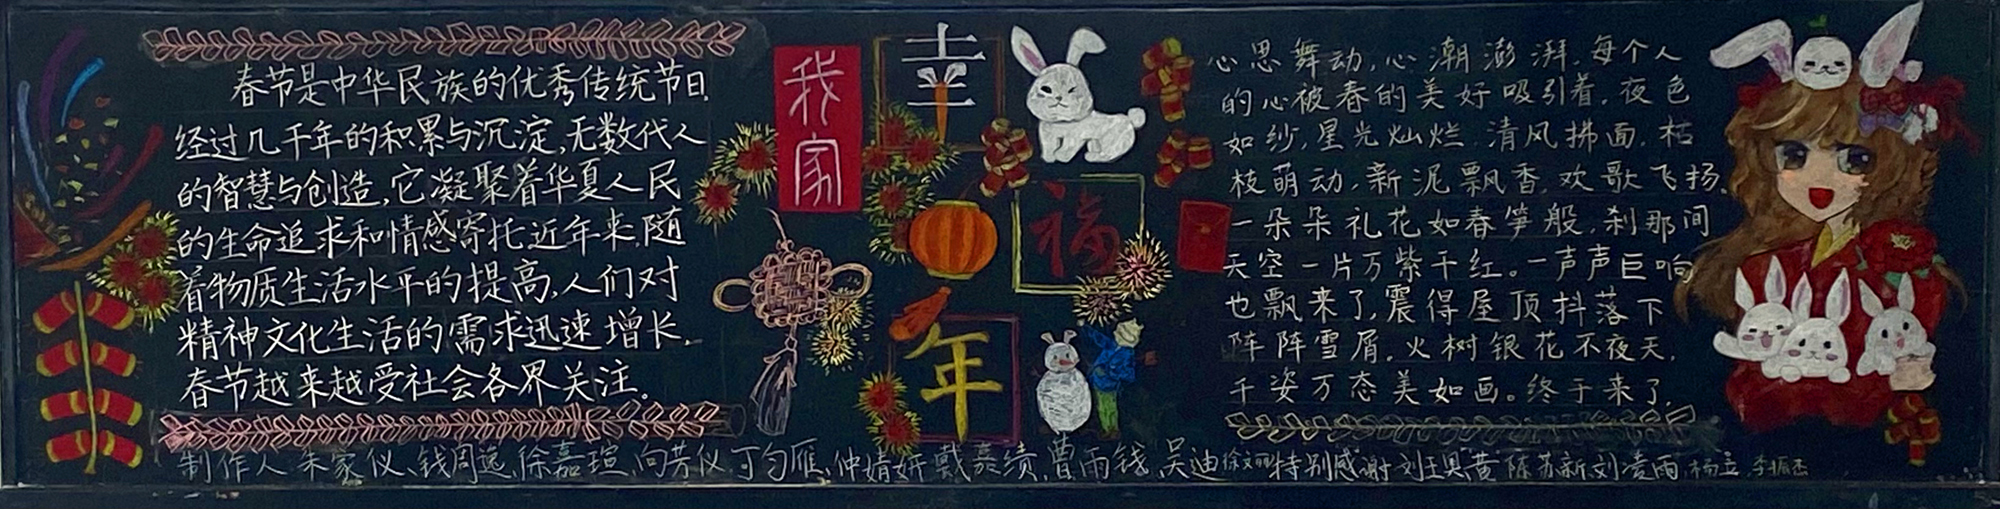 春节是中华民族的优秀传统节日,
经过几千年的积累与沉淀,无数代人
的智慧与创造,它凝聚着华夏人民
的生命追求和情感寄托.近年来,随
着物质生活水平的提高,人们对
精神文化生活的需求迅速增长.
春节越来越受社会各界关注。
我家
幸
福
年
心思舞动,心潮澎湃.每个人
的心被春的美好吸引着.夜色
如纱,星光灿烂.清风拂面.枯
枝萌动.新泥飘香.欢歌飞扬.
一朵朵礼花如春笋般,刹那间
天空一片万紫千红。一声声巨响
也飘来了,震得屋顶抖落下
阵阵雪屑.火树银花不夜天.
千姿万态美如画。终于来了.
制作人 朱家仪、钱周逸、徐嘉瑄、向芳仪、丁匀雁、仲婧妍、戴嘉绩、曹雨钱、吴迪 徐文丽 特别感谢 刘王 黄 陈 苏新 刘凌雨 杨立、李振杰